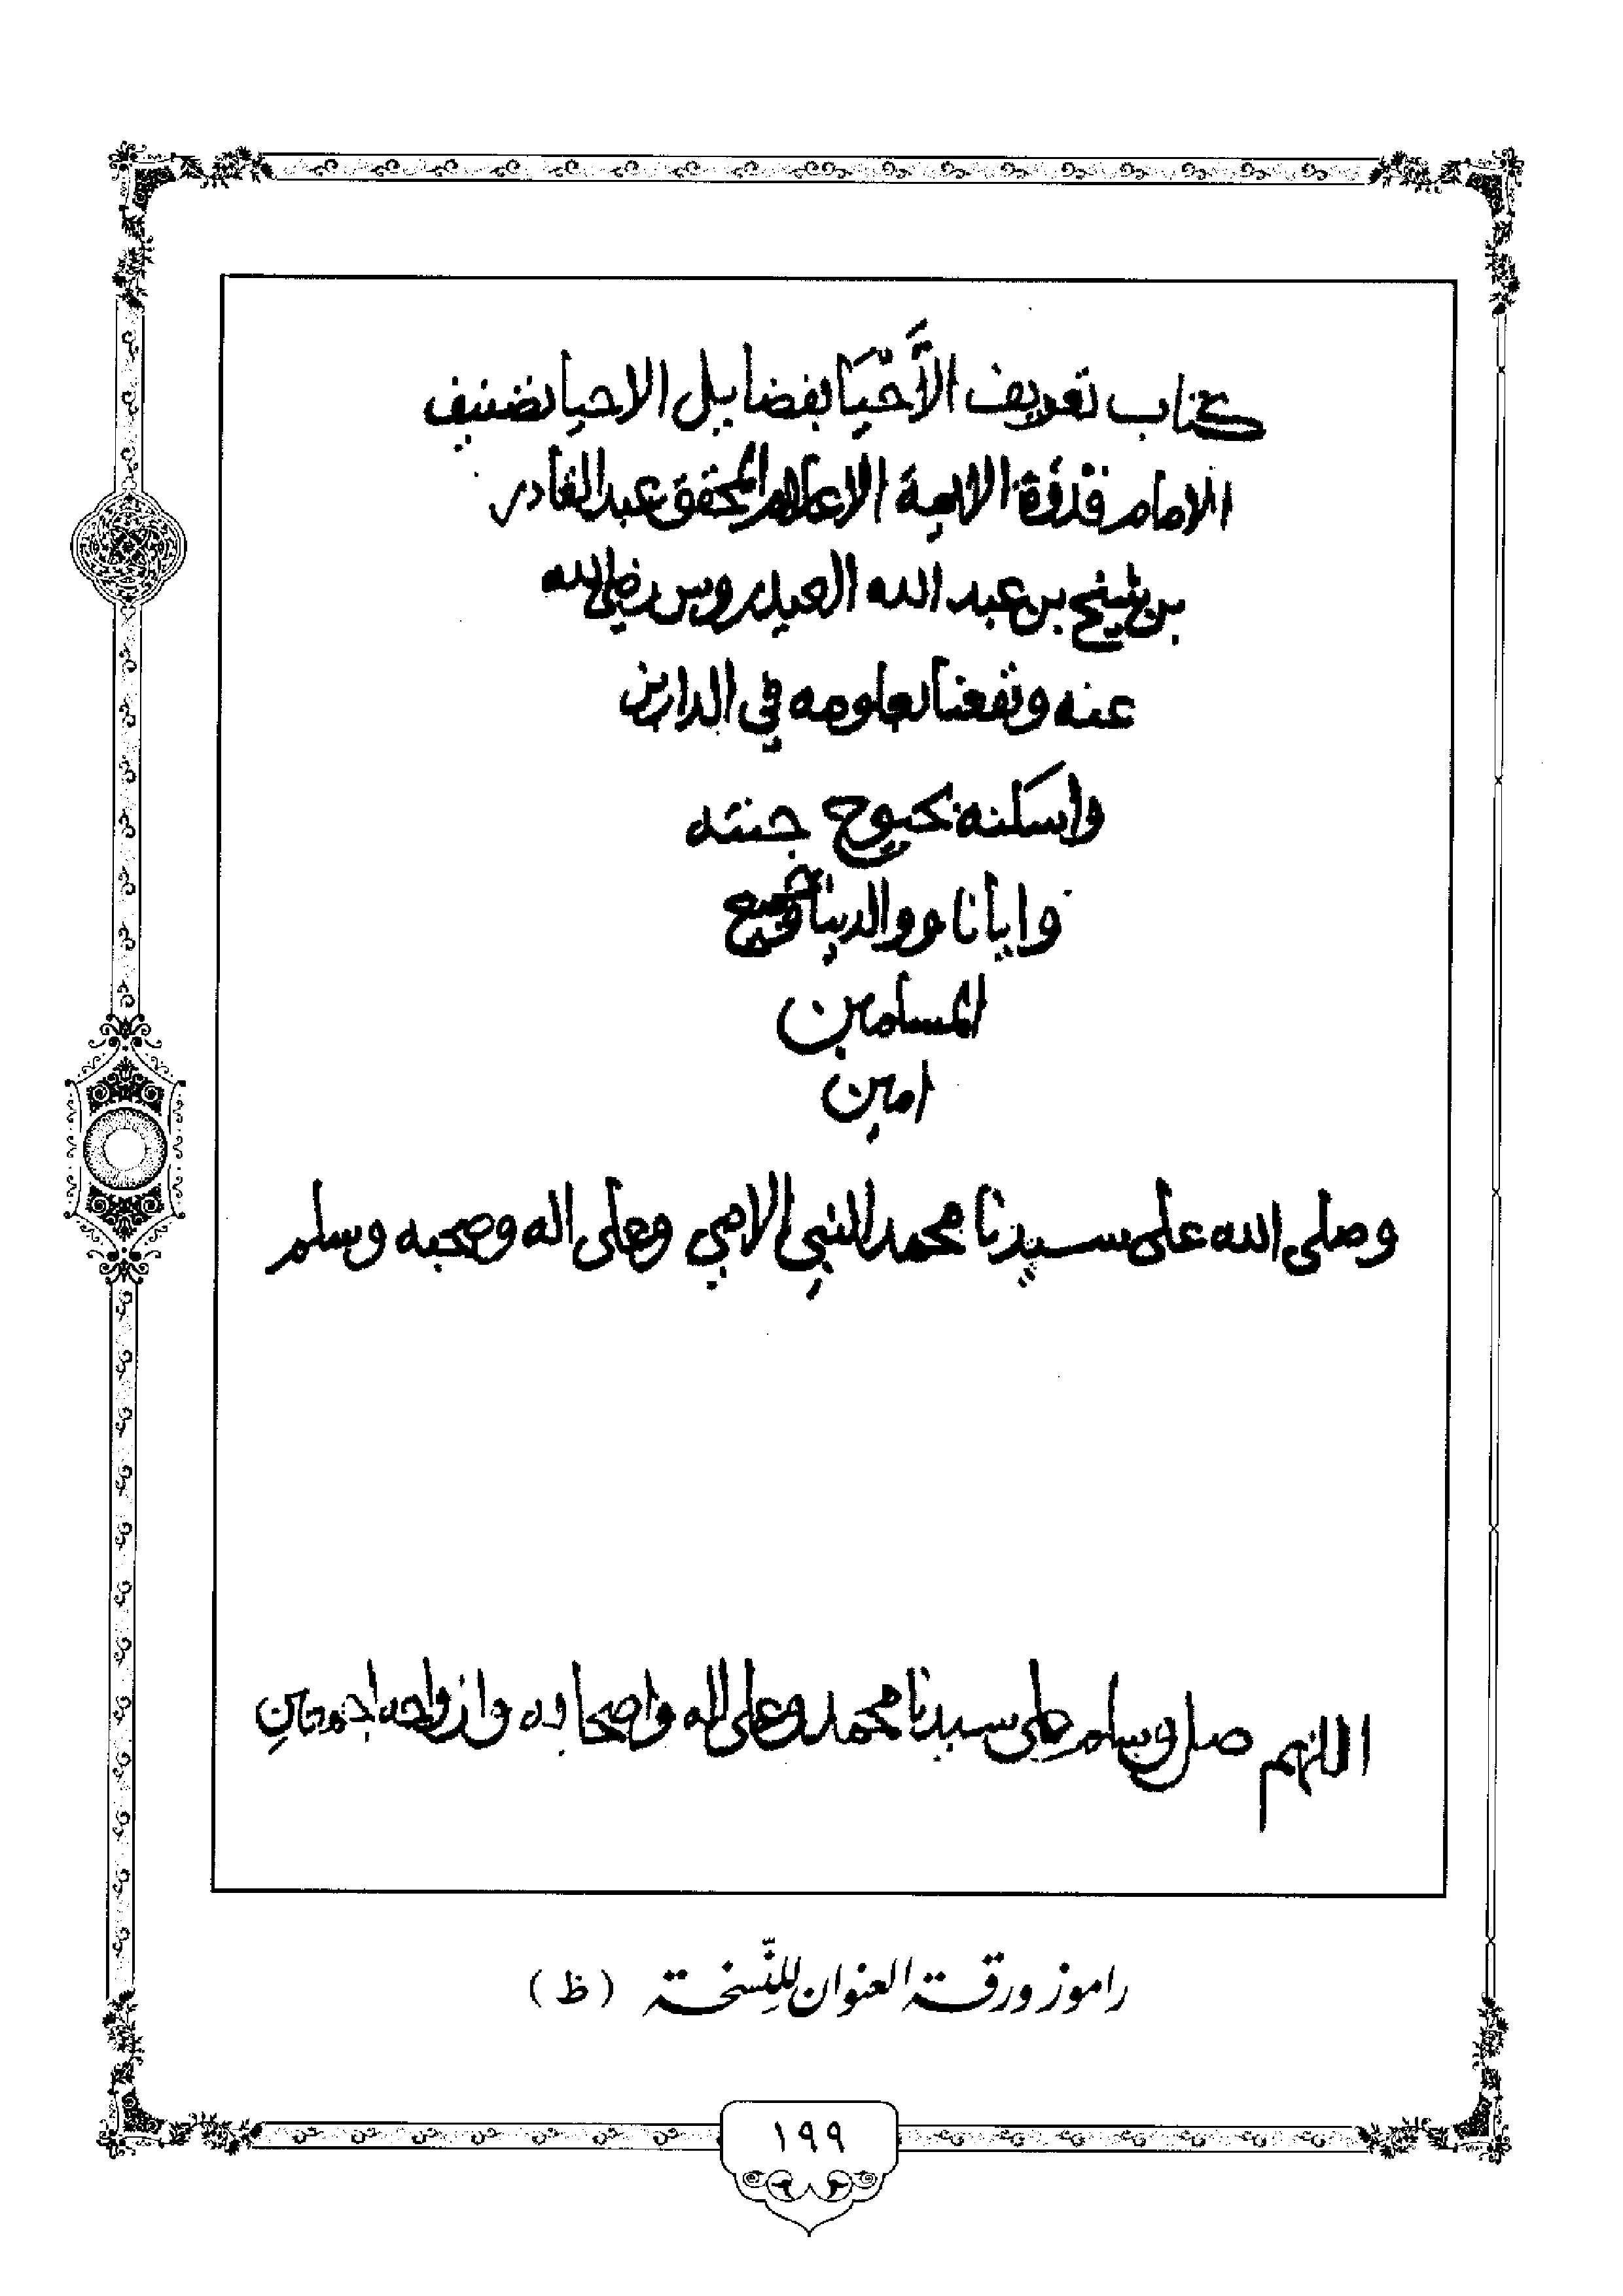 كتاب تعريف الأَحْيَا بفضايل الاحيا تصنيف
الامام قدوة الايمة الاعلام المحقق عبد القادر
بن شيخ بن عبد الله العيدروس رضي الله
عنه ونفعنا بعلومه في الدارين
واسكنه بحبوح جنته
وايانا ووالدينا وجميع
المسلمين
امين
وصلى الله على سيدنا محمد النبي الامي وعلى اله وصحبه وسلم
اللهم صل وسلم على سيدنا محمد وعلى اله واصحابه وازواجه اجمعين
راموز ورقة العنوان للنّسخة (ظ)
١٩٩